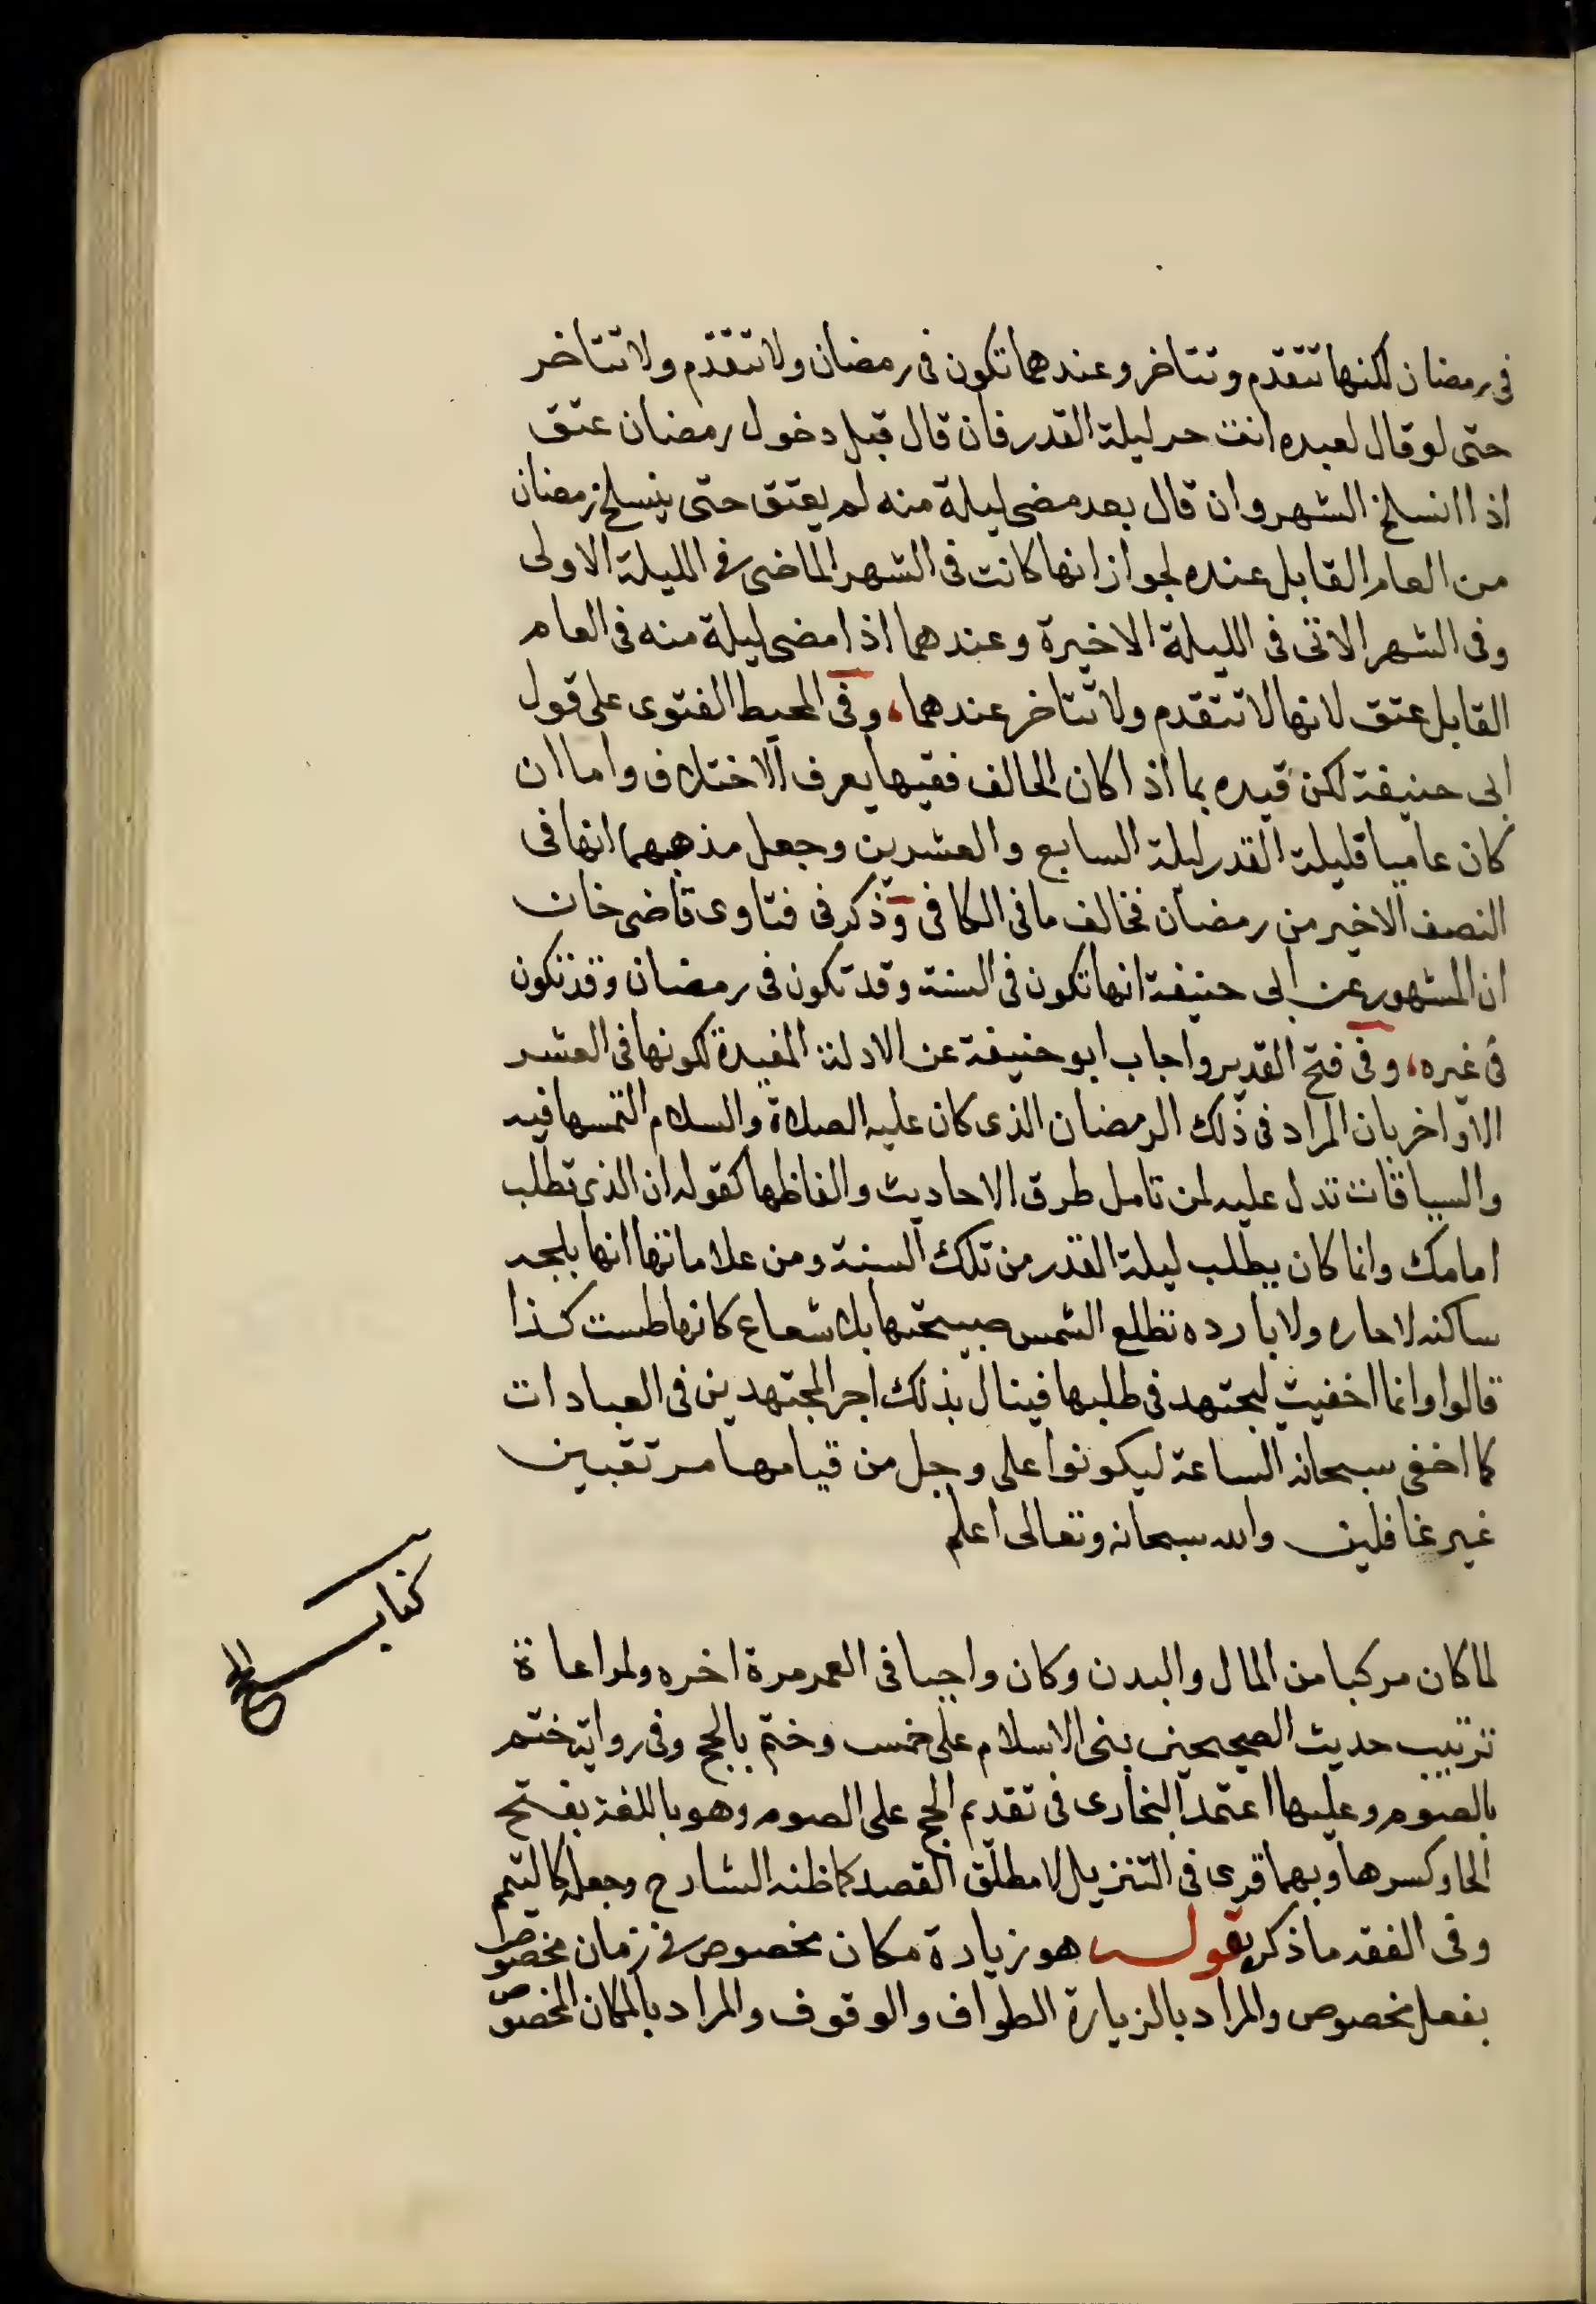 في رمضان لكنها تتقدم وتتاخر وعندهما تكون في رمضان ولا تتقدم ولا تتاخر
حتى لو قال لعبده انت حر ليلة القدر فان قال قبل دخول رمضان عتق
اذا انسلخ الشهر وان قال بعد مضى ليلة منه لم يعتق حتى ينسلخ رمضان
من العام القابل عنده لجواز انها كانت في الشهر الماضى في الليلة الاولى
وفى الشهر الاتى فى الليلة الاخيرة وعندهما اذا مضى ليلة منه فى العام
القابل عتق لانها لا تتقدم ولا تتاخر عندهما، وفى المحيط الفتوى على قول
ابى حنيفة لكن قيده بما اذا كان الحالف فقيها يعرف الاختلاف واما ان
كان عاميا فليلة القدر ليلة السابع والعشرين وجعل مذهبهما انها فى
النصف الاخير من رمضان فخالف ما فى الكافى وذكر فى فتاوى قاضى خان
ان المشهور عن ابى حنيفة انها تكون فى السنة وقد تكون فى رمضان وقد تكون
فى غيره، وفى فتح القدير واجاب ابو حنيفة عن الادلة المفيدة لكونها فى العشر
الاواخر بان المراد فى ذلك الرمضان الذى كان عليه الصلاة والسلام التمسها فيه
والسياقات تدل عليه لمن تامل طرق الاحاديث والفاظها كقوله ان الذى تطلب
امامك وانما كان يطلب ليلة القدر من تلك السنة ومن علاماتها انها بلجه
ساكنه لا حاره ولا بارده تطلع الشمس صبيحتها بلا شعاع كانها طست كذا
قالوا وانما اخفيت ليجتهد فى طلبها فينال بذلك اجر المجتهدين فى العبادات
كما اخفى سبحانه الساعة ليكونوا على وجل من قيامها مرتقبين
غير غافلين والله سبحانه وتعالى اعلم
كتاب الحج
لما كان مركبا من المال والبدن وكان واجبا فى العمر مرة اخره ولمراعاة
ترتيب حديث الصحيحين بنى الاسلام على خمس وختم بالحج وفى رواية ختم
بالصوم وعليها اعتمد البخارى فى تقديم الحج على الصوم وهو باللغة بفتح
الحا وكسرها وبهما قرى فى التنزيل لا مطلق القصد كما ظنه الشارح وجعله كالتيمم
وفى الفقه ما ذكره بقوله هو زيادة مكان مخصوص فى زمان مخصوص
بفعل مخصوص والمراد بالزيارة الطواف والوقوف والمراد بالمكان المخصوص